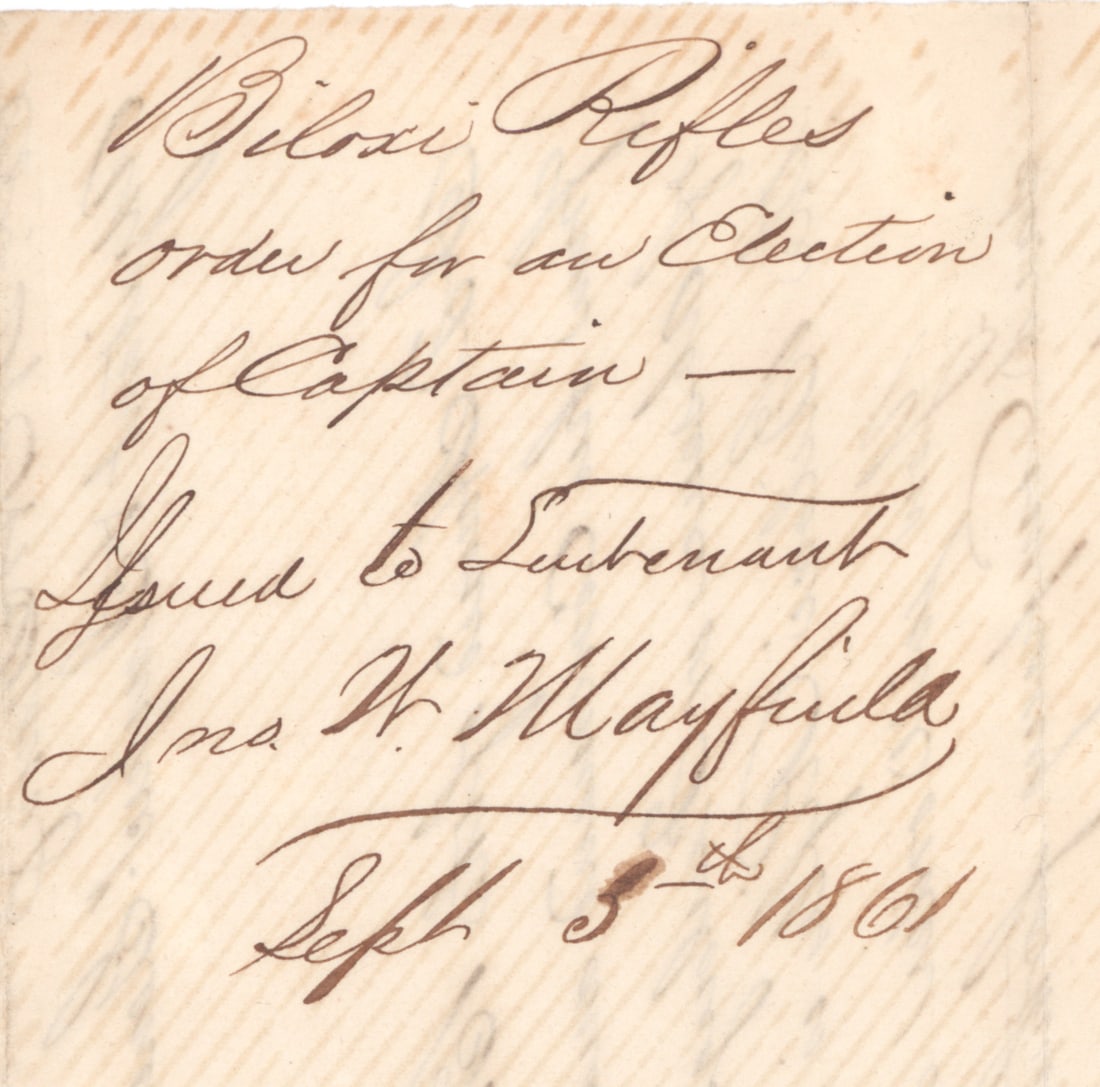 Biloxi Rifles
order for an Election
of Captain —
Issued to Lieutenant
Jno. W. Mayfield
Sept 3th 1861